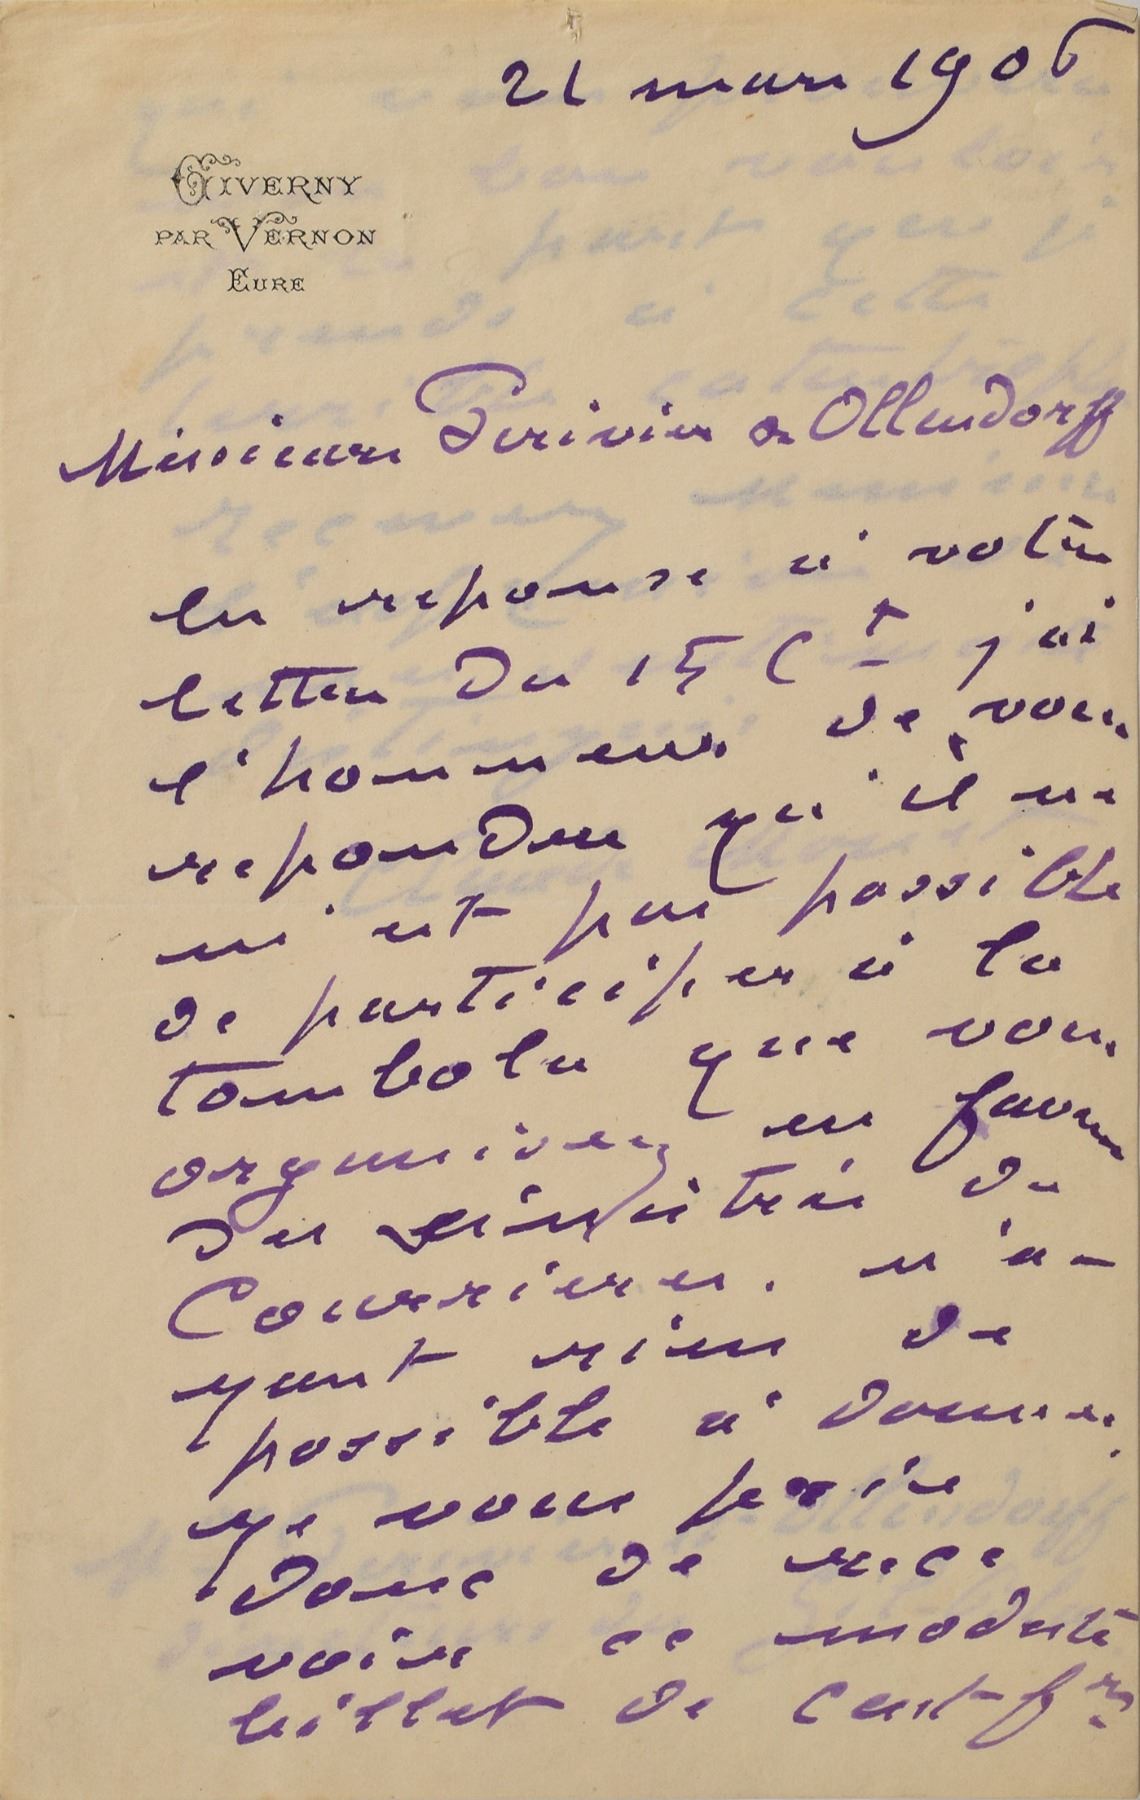 21 mars 1906
GIVERNY
PAR VERNON
EURE
Messieurs Périvier & Ollendorff
En reponse à votre
lettre du 15 Ct j'ai
l'honneur de vous
repondre qu'il ne
m'est pas possible
de participer à la
tombola que vous
organisez en faveur
des sinistrés de
Courrieres. n'a-
yant rien de
possible à donner,
je vous prie
donc de rece
voir ce modeste
billet de cent frs